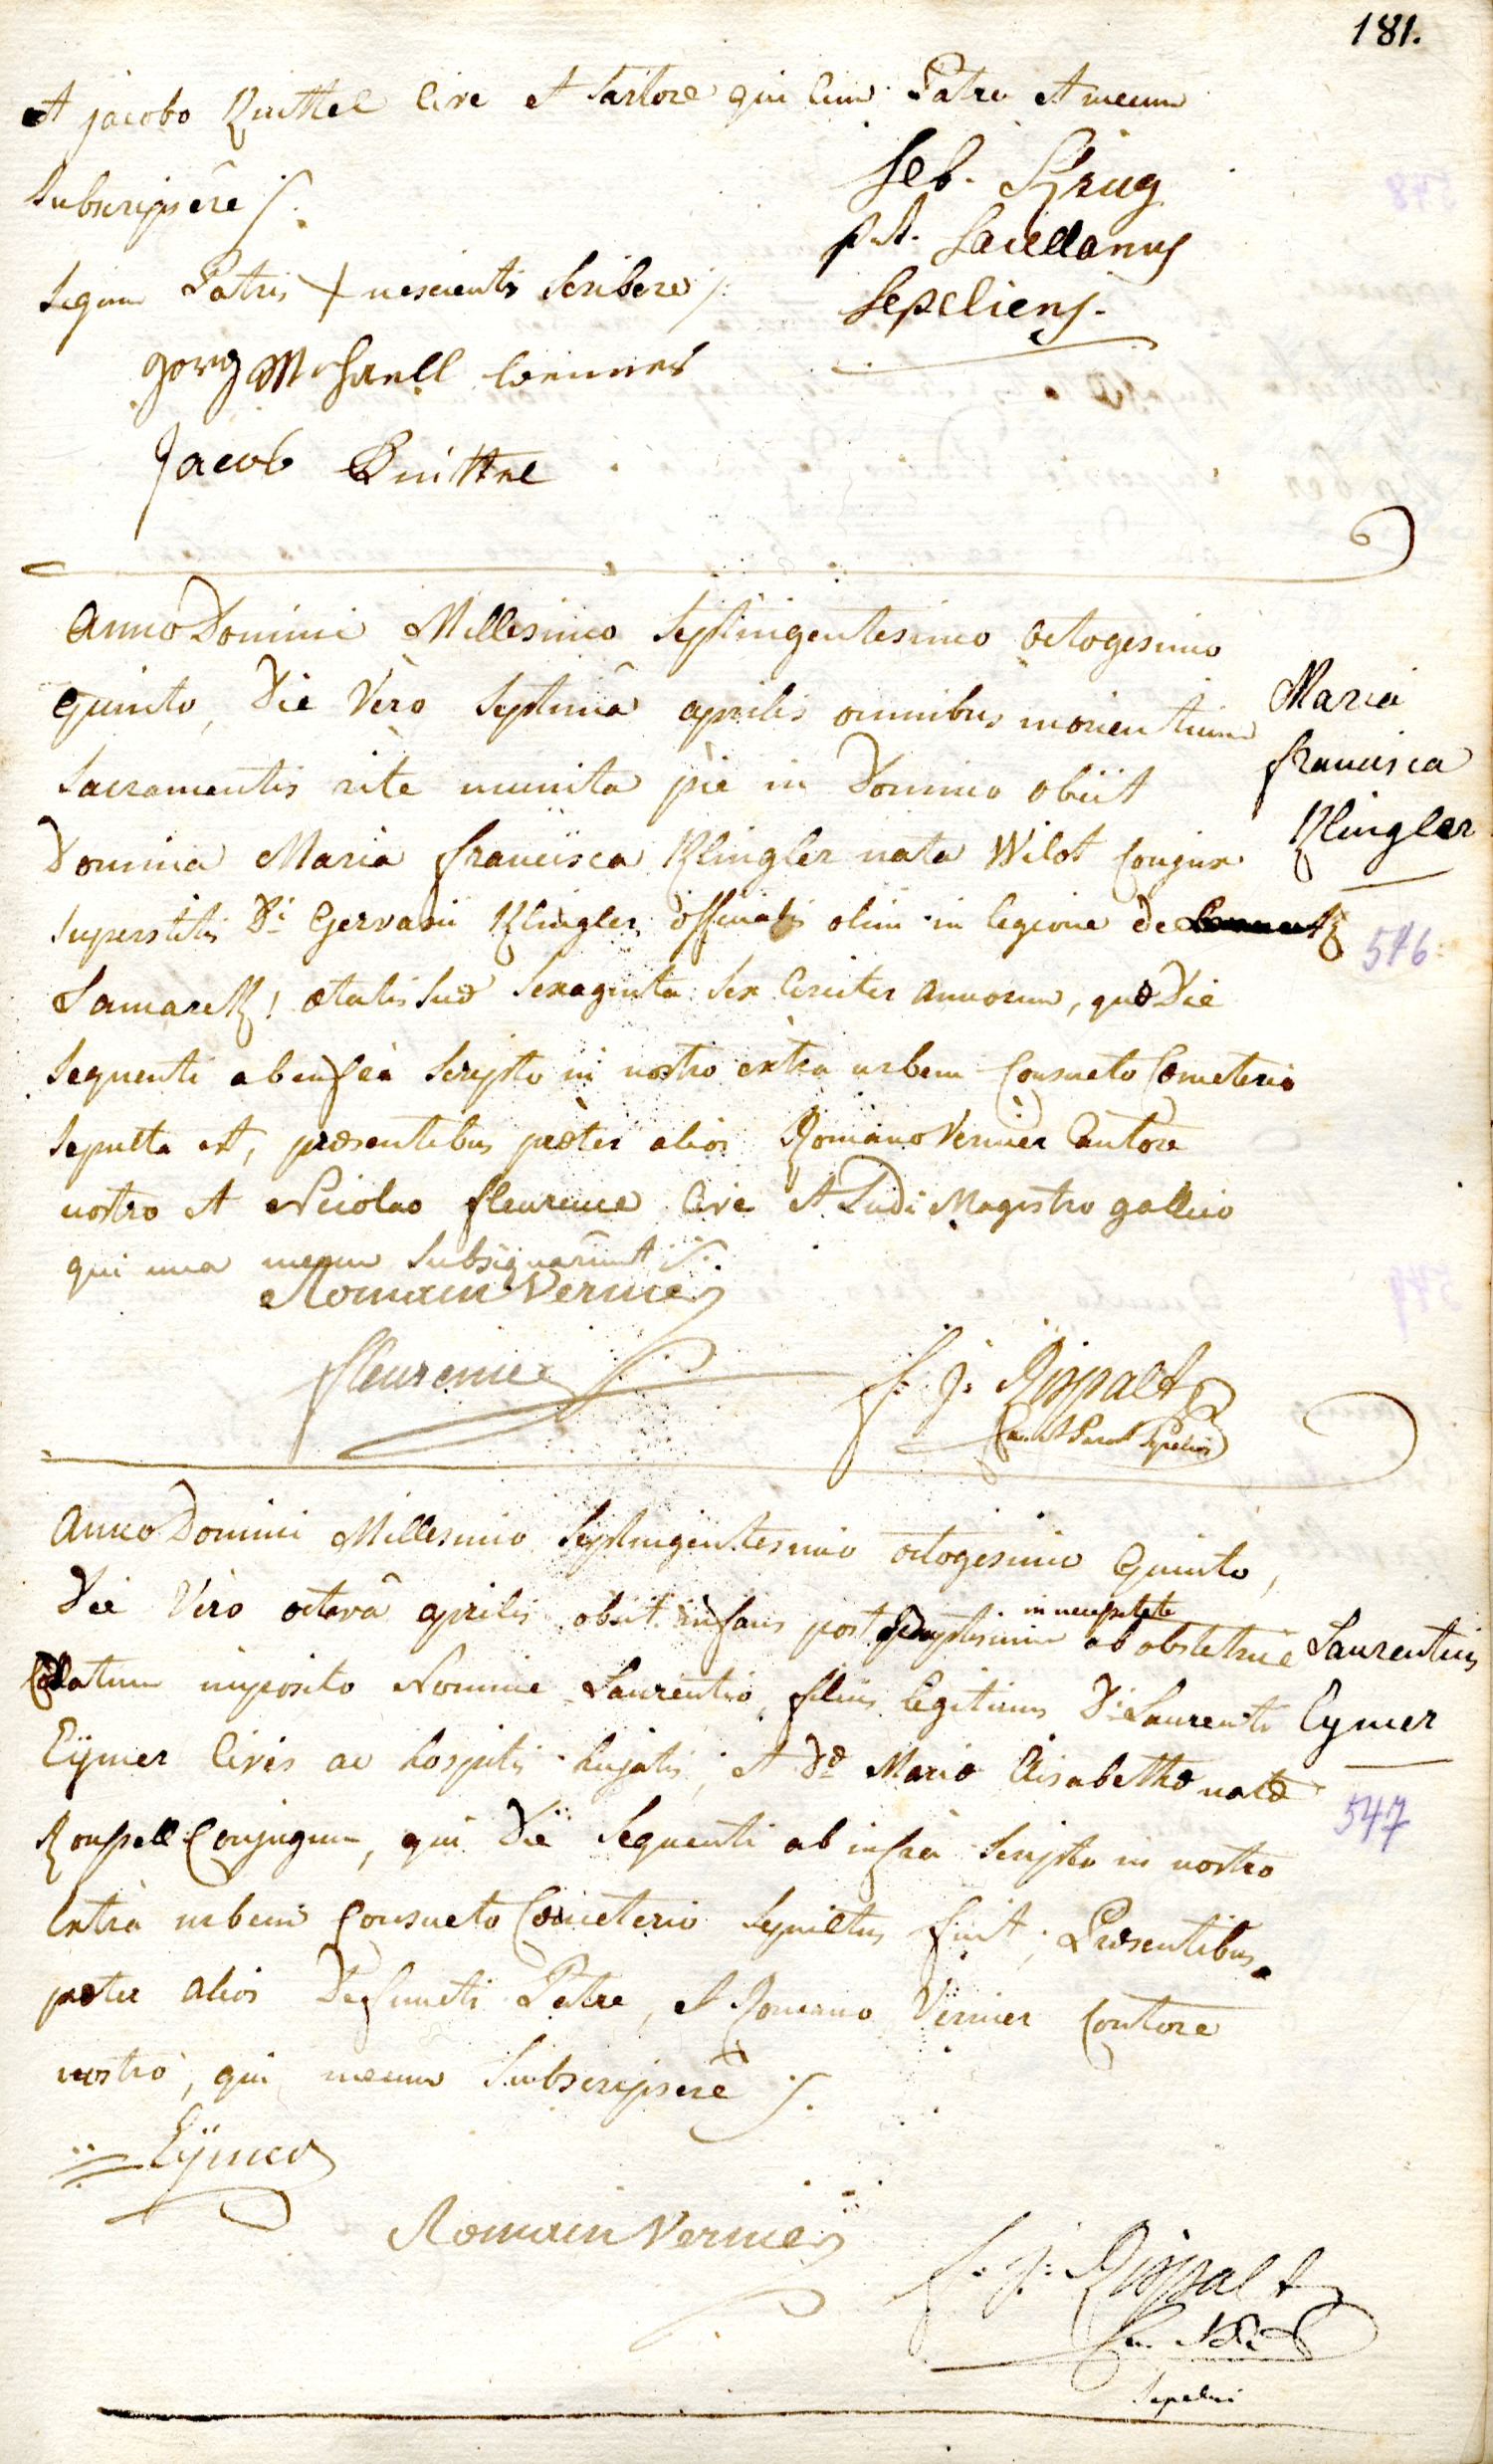 181.
et jacobo Knittel Cive et Sartore qui cum Patre et mecum
Subscripsêre ./.
Signum Patris + nescientis Scribere ./.
Seb. Krug
p.t. Sacellanus
Sepeliens.
gorg Michaell wenner
Jacob Knittel
Anno Domini Millesimo Septingentesimo octogesimo
quinto, Die Verò Septimâ aprilis omnibus morientium
Sacramentis ritè munita piè in Domino obiit
Domina Maria francisca Klingler nata Wilot Conjux
Superstitis Di Gervasii Klingler officialis olim in legione de
Lamarck! ætatis Suæ Sexaginta Sex Circiter annorum, quæ Die
Sequenti ab infrà Scripto in nostro extra urbem Consueto Cœmeterio
Sepulta est, præsentibus præter alios Romano Vernier Cantore
nostro et Nicolao fleurence Cive et Ludi Magistro gallico
qui una mecum Subsignarunt ./.
Maria
francisca
Klingler
546.
Romain Vernier
fleurence
f. j. Rippalt
Anno Domini Millesimo Septingentesimo octogesimo Quinto,
Die Verò octavâ aprilis obiit infans post Baptismum in necessitate ab obstetrice
Collatum imposito Nomine Laurentio, filius legitimus Di Laurentii
Eÿmer Civis ac hospitis hujatis, et Dæ Mariæ Elisabethæ natæ
Conjugum, qui Die Sequenti ab infrà Scripto in nostro
Extrà urbem Consueto Cœmeterio Sepultus fuit; Præsentibus
præter alios Defuncti Patre, et Romano Vernier Cantore
nostro, qui mecum Subscripsêre ./.
Laurentius
Eymer
547
Eÿmer
Romain Vernier
f. j. Rippalt